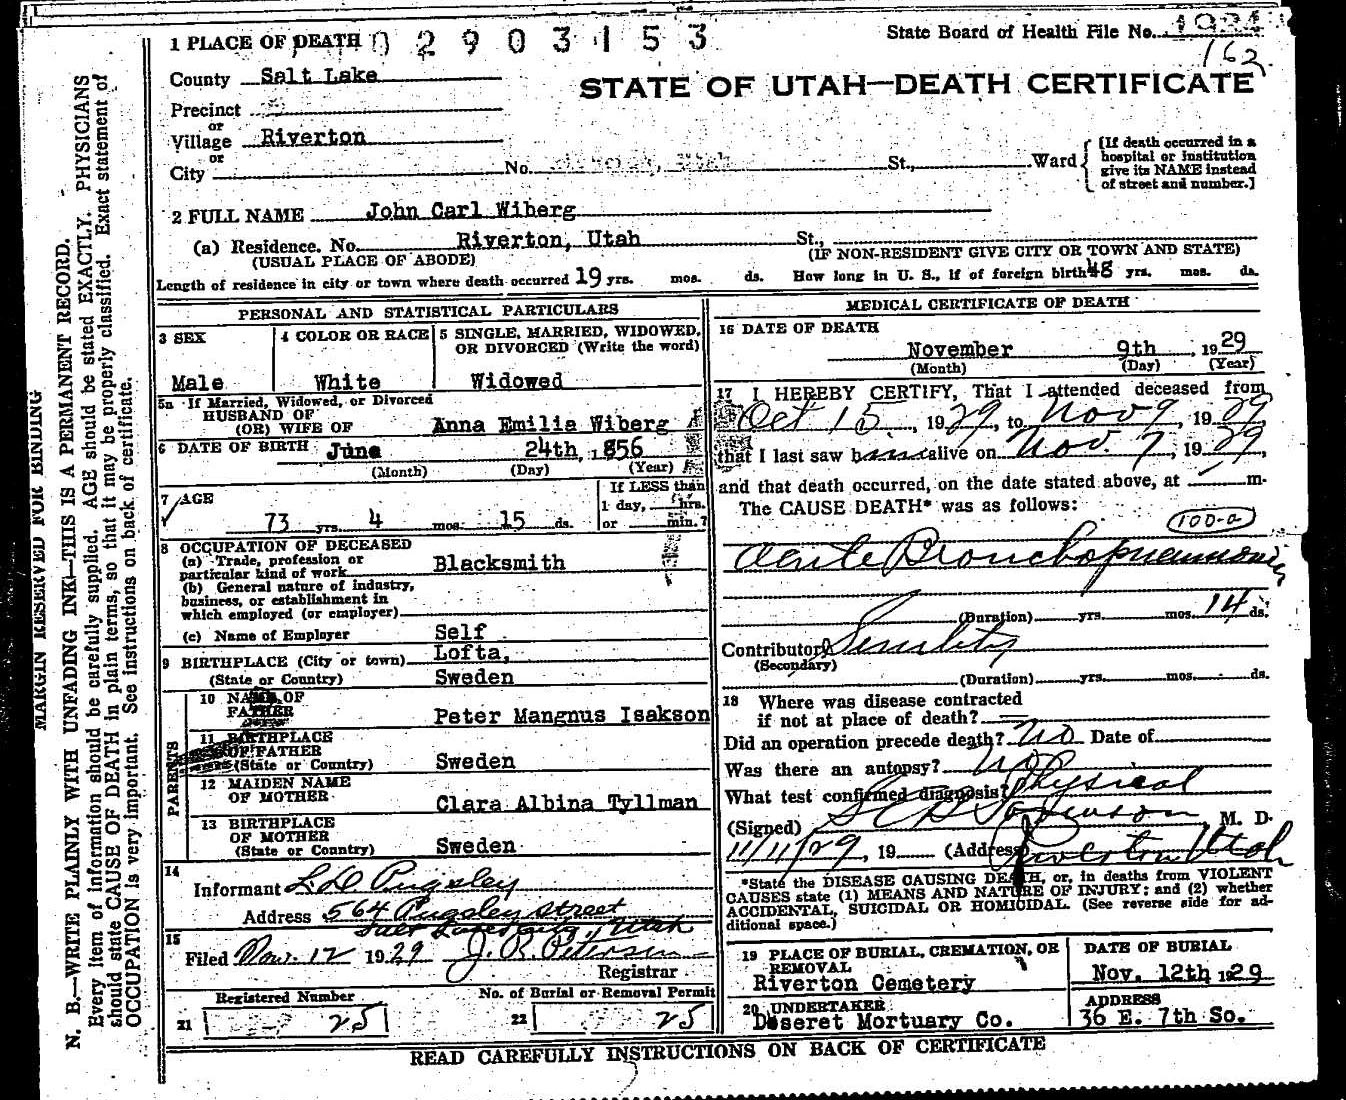 1 PLACE OF DEATH 02903153
State Board of Health File No.
162
County Salt Lake
STATE OF UTAH—DEATH CERTIFICATE
Precinct
or
Village Riverton
or
City No. St., Ward
[If death occurred in a
hospital or institution
give its NAME instead
of street and number.]
2 FULL NAME John Carl Wiberg
(a) Residence. No. Riverton, Utah St.,
(USUAL PLACE OF ABODE) (IF NON-RESIDENT GIVE CITY OR TOWN AND STATE)
Length of residence in city or town where death occurred 19 yrs. mos. ds. How long in U. S., if of foreign birth 48 yrs. mos. ds.
PERSONAL AND STATISTICAL PARTICULARS
3 SEX 4 COLOR OR RACE 5 SINGLE, MARRIED, WIDOWED,
OR DIVORCED (Write the word)
Male White Widowed
5a If Married, Widowed, or Divorced
HUSBAND OF
(OR) WIFE OF Anna Emilia Wiberg
6 DATE OF BIRTH June 24th, 1856
(Month) (Day) (Year)
7 AGE If LESS than
1 day, hrs.
73 yrs. 4 mos. 15 ds. or min.?
8 OCCUPATION OF DECEASED
(a) Trade, profession or
particular kind of work Blacksmith
(b) General nature of industry,
business, or establishment in
which employed (or employer)
(c) Name of Employer Self
9 BIRTHPLACE (City or town) Lofta,
(State or Country) Sweden
PARENTS
10 NAME OF
FATHER Peter Mangnus Isakson
11 BIRTHPLACE
OF FATHER
(State or Country) Sweden
12 MAIDEN NAME
OF MOTHER Clara Albina Tyllman
13 BIRTHPLACE
OF MOTHER
(State or Country) Sweden
14
Informant L D Pugsley
Address 564 Pugsley Street
Salt Lake City, Utah
15
Filed Nov. 12 1929 J. R. Peterson
Registrar
Registered Number No. of Burial or Removal Permit
21 25 22 25
MEDICAL CERTIFICATE OF DEATH
16 DATE OF DEATH
November 9th, 1929
(Month) (Day) (Year)
17 I HEREBY CERTIFY, That I attended deceased from
Oct 15, 1929, to Nov 9, 1929
that I last saw him alive on Nov. 7, 1929,
and that death occurred, on the date stated above, at m.
The CAUSE DEATH* was as follows:
100-a
Acute Bronchopneumonia
(Duration) yrs. mos. 14 ds.
Contributory Senility
(Secondary)
(Duration) yrs. mos. ds.
18 Where was disease contracted
if not at place of death?
Did an operation precede death? No Date of
Was there an autopsy? No
What test confirmed diagnosis? Physical
(Signed) M. D.
11/11/29, 19 (Address) Riverton Utah
*State the DISEASE CAUSING DEATH, or, in deaths from VIOLENT
CAUSES state (1) MEANS AND NATURE OF INJURY; and (2) whether
ACCIDENTAL, SUICIDAL OR HOMICIDAL. (See reverse side for ad-
ditional space.)
19 PLACE OF BURIAL, CREMATION, OR
REMOVAL
Riverton Cemetery
DATE OF BURIAL
Nov. 12th 1929
20 UNDERTAKER
Deseret Mortuary Co.
ADDRESS
36 E. 7th So.
READ CAREFULLY INSTRUCTIONS ON BACK OF CERTIFICATE
MARGIN RESERVED FOR BINDING
N. B.—WRITE PLAINLY WITH UNFADING INK—THIS IS A PERMANENT RECORD.
Every item of information should be carefully supplied. AGE should be stated EXACTLY. PHYSICIANS
should state CAUSE OF DEATH in plain terms, so that it may be properly classified. Exact statement of
OCCUPATION is very important. See instructions on back of certificate.